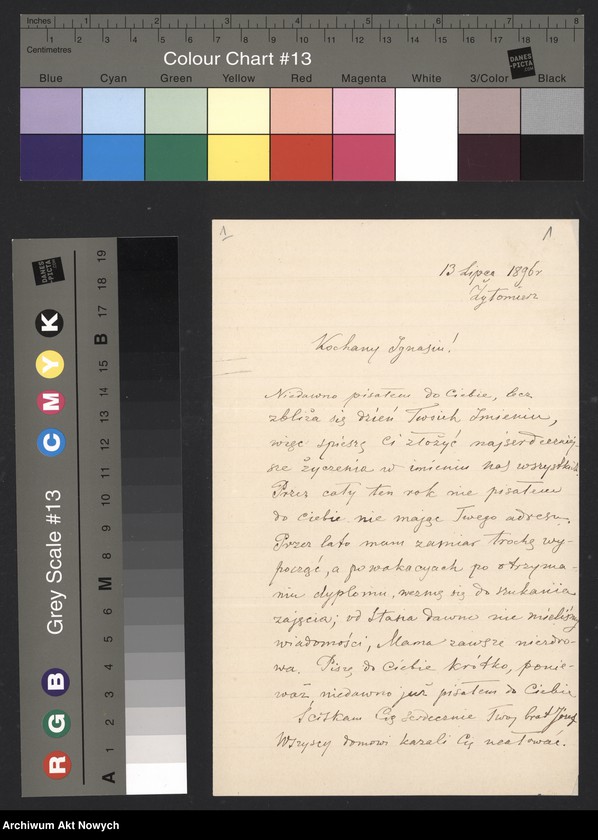 Inches 1 2 3 4 5 6 7 8
1 2 3 4 5 6 7 8 9 10 11 12 13 14 15 16 17 18 19
Centimetres
Colour Chart #13
DANES-PICTA.COM
Blue Cyan Green Yellow Red Magenta White 3/Color Black
DANES-PICTA.COM
Grey Scale #13
R G B C M Y K
A 1 2 3 4 5 6 M 8 9 10 11 12 13 14 15 B 17 18 19
1 1
13 Lipca 1896 r
Żytomierz
Kochany Ignasiu!
Niedawno pisałem do Ciebie, lecz
zbliża się dzień Twoich Imienin,
więc spieszę Ci złożyć najserdeczniej-
sze życzenia w imieniu nas wszystkich.
Przez cały ten rok nie pisałem
do ciebie nie mając Twego adresu.
Przez lato mam zamiar trochę wy-
począć, a po wakacyach po otrzyma-
niu dyplomu, wezmę się do szukania
zajęcia; od Stasia dawno nie mieliśmy
wiadomości, Mama zawsze niezdro-
wa. Piszę do Ciebie krótko, ponie-
waż niedawno już pisałem do Ciebie
Ściskam Cię serdecznie Twój brat Józef
Wszyscy domowi kazali Cię ucałować.
Archiwum Akt Nowych